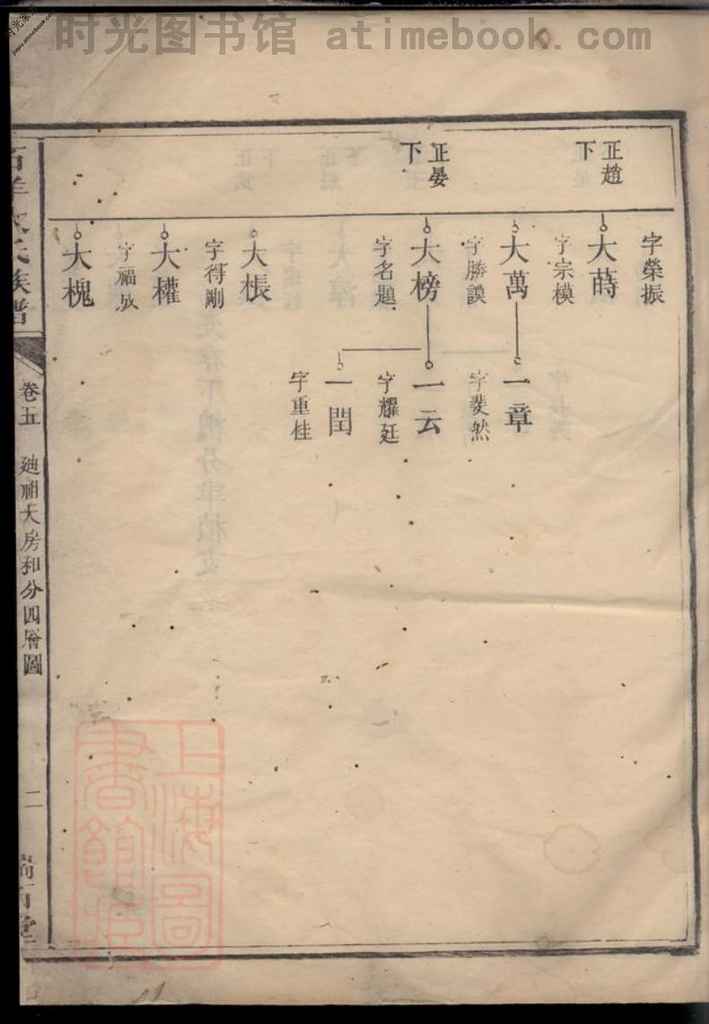 时光图书馆 atimebook.com
正趙
下
字榮振
大蒔
字宗模
正晏
下
大萬
字勝謨
大榜
字名題
大棖
字得剛
大權
字福放
大槐
一章
字斐然
一云
字耀廷
一閏
字重桂
族譜
卷五
廸補大房和分四層圖
二
尚
堂
上海圖
書館藏